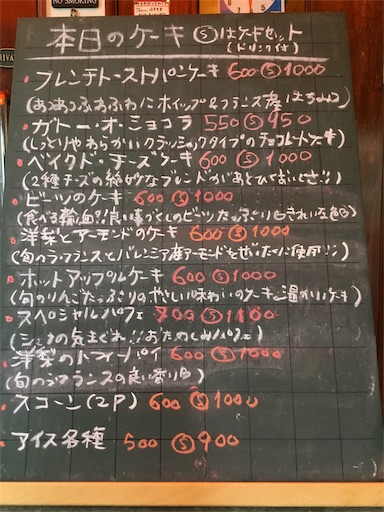 NO SMOKING
本日のケーキ Ⓢはケーキセット
(ドリンク付)
フレンチトーストパンケーキ 600 Ⓢ1000
(あつあつふわふわにホイップ&フランス産はちみつ)
ガトー・オ・ショコラ 550 Ⓢ950
(しっとりやわらかいクラッシックタイプのチョコレートケーキ)
ベイクド・チーズケーキ 600 Ⓢ1000
(2種チーズの絶妙なブレンドがあとひくおいしさ!!)
ビーツのケーキ 600 Ⓢ1000
(食べる輪血?!良い事づくしのビーツたっぷり きれいな色)
洋梨とアーモンドのケーキ 600 Ⓢ1000
(旬のラ・フランスとバレンシア産アーモンドをぜいたくに使用!!)
ホットアップルケーキ 600 Ⓢ1000
(旬のりんごたっぷりのやさしい味わいのケーキ 温かいケーキ)
スペシャルパフェ 700 Ⓢ1100
(シェフの気まぐれ!!おたのしみパフェ)
洋梨のトフィーパイ 600 Ⓢ1000
(旬のラ・フランスの良い香り)
スコーン(2P) 600 Ⓢ1000
アイス各種 500 Ⓢ900